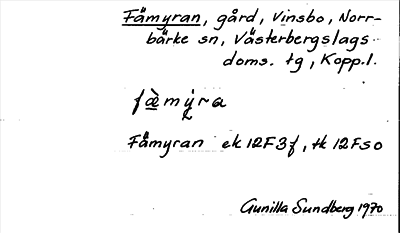 Fämyran, gård, Vinsbo, Norr-
bärke sn, Västerbergslags
doms. tg, Kopp.l.
fæ̀myra
Fämyran ek 12F3f, tk 12Fso
Gunilla Sundberg 1970